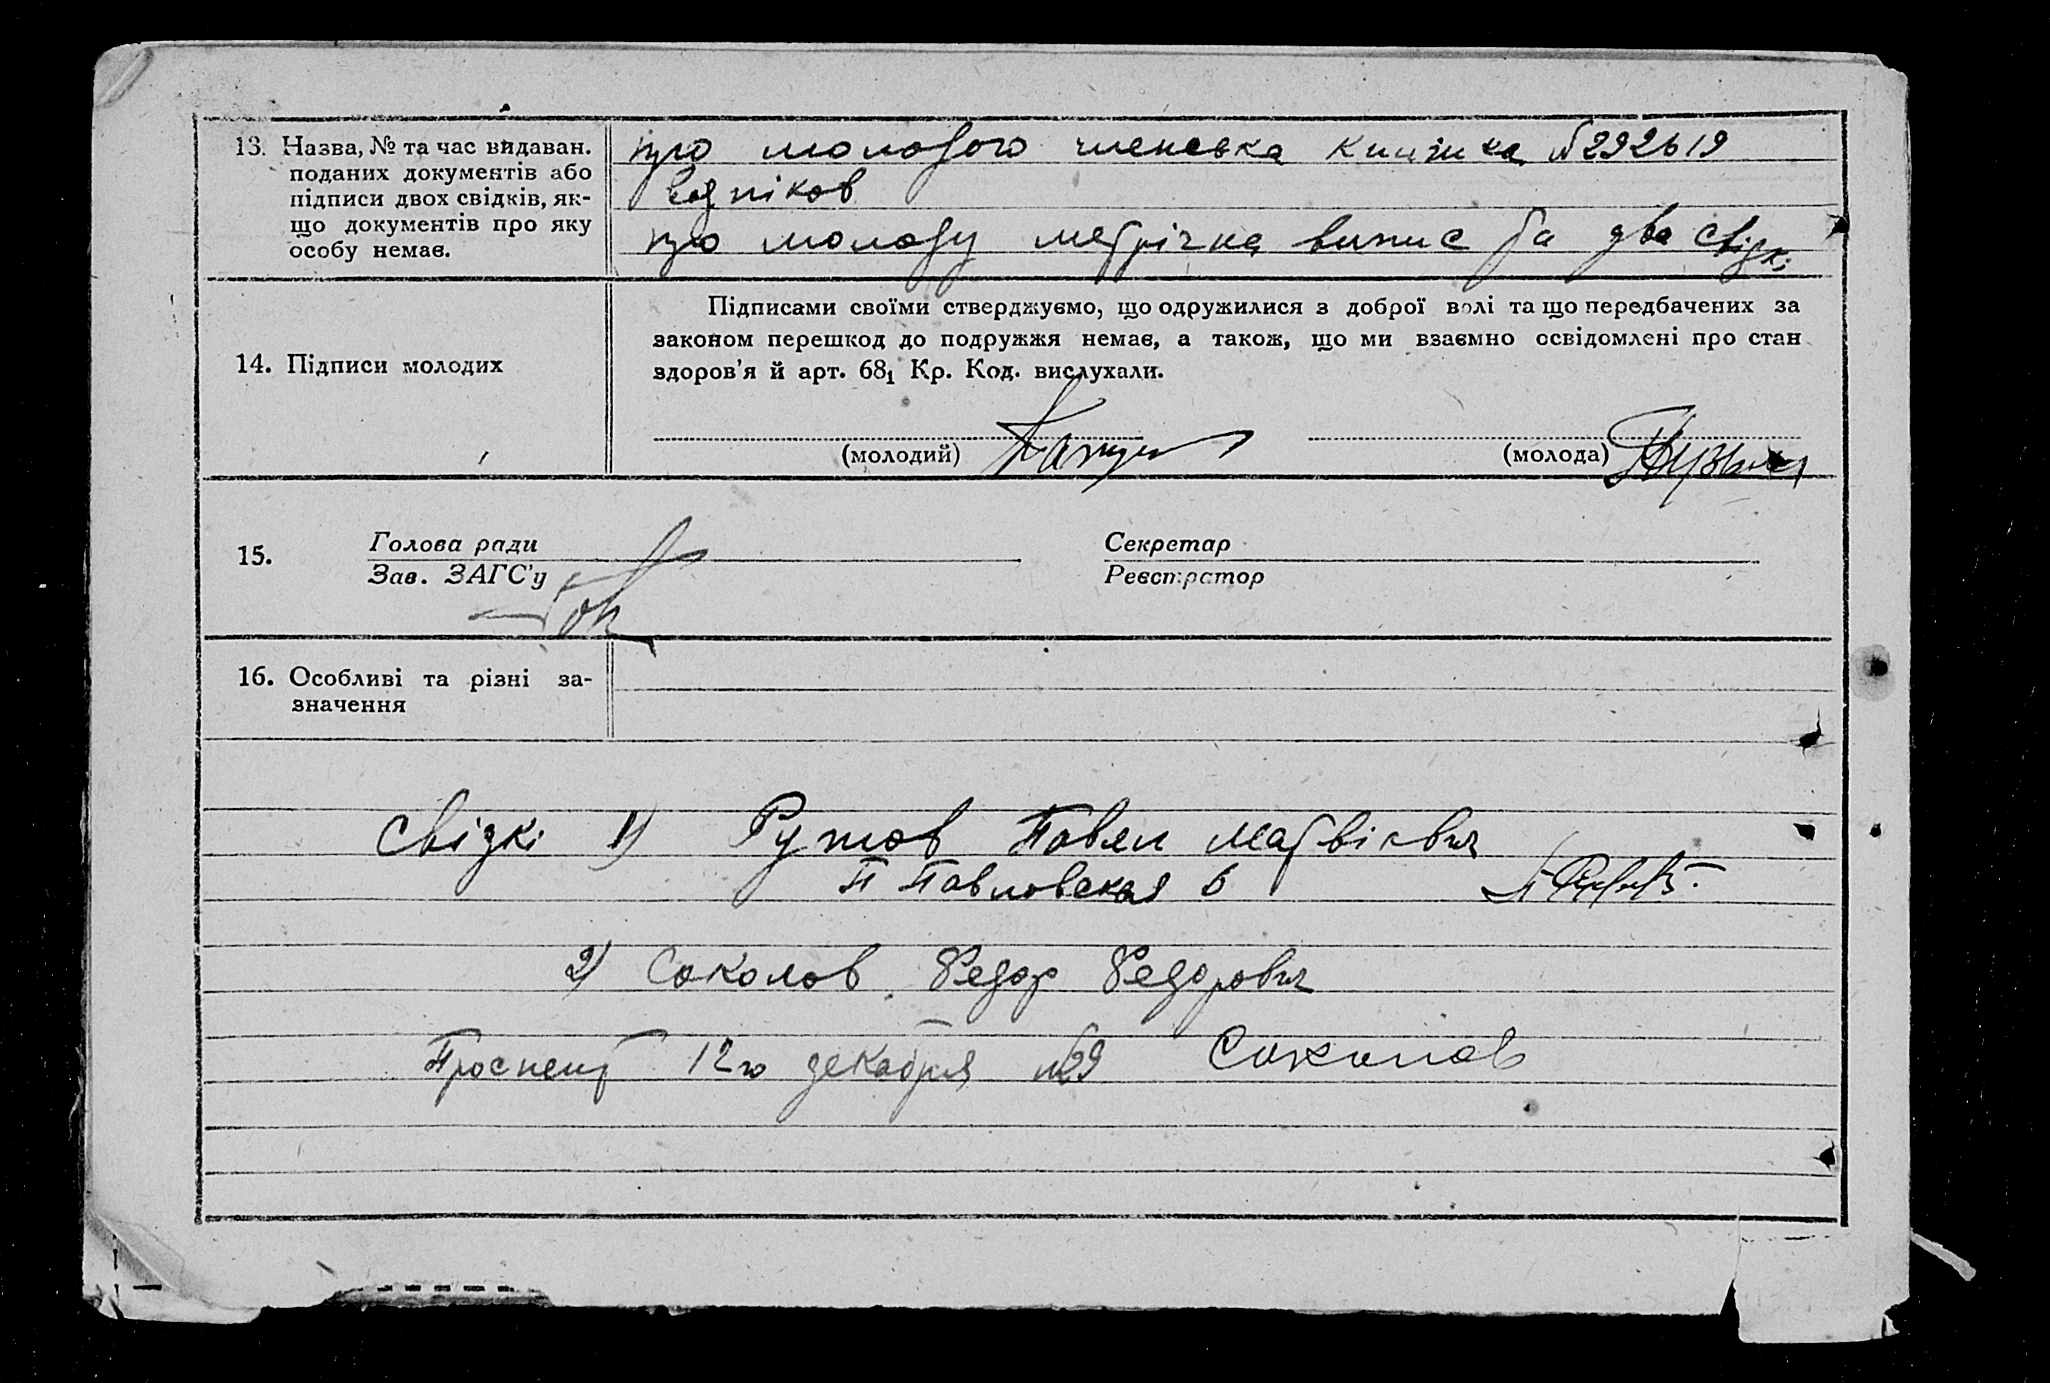 13. Назва, № та час видаван.
поданих документів або
підписи двох свідків, як-
що документів про яку
особу немає.
про молодого членська книжка №292619
про молоду метрічна випис та два свідк.
14. Підписи молодих
Підписами своїми стверджуємо, що одружилися з доброї волі та що передбачених за
законом перешкод до подружжя немає, а також, що ми взаємно освідомлені про стан
здоров'я й арт. 68₁ Кр. Код. вислухали.
(молодий)
(молода)
15.
Голова ради
Зав. ЗАГС'у
Секретар
Реєстратор
16. Особливі та різні за-
значення
Свідкі 1) Павел Матвієвич
П Павловская 6
2) Соколов Федор Федорович
Проспект 12го декабря №29 Соколов